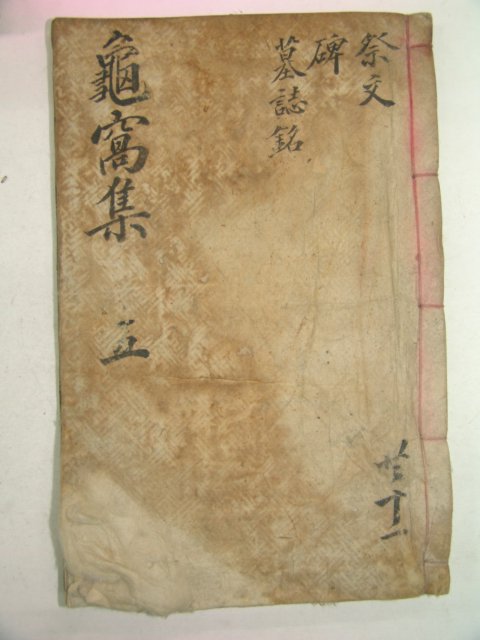 祭文
碑
墓誌銘
龜窩集 五
共十一